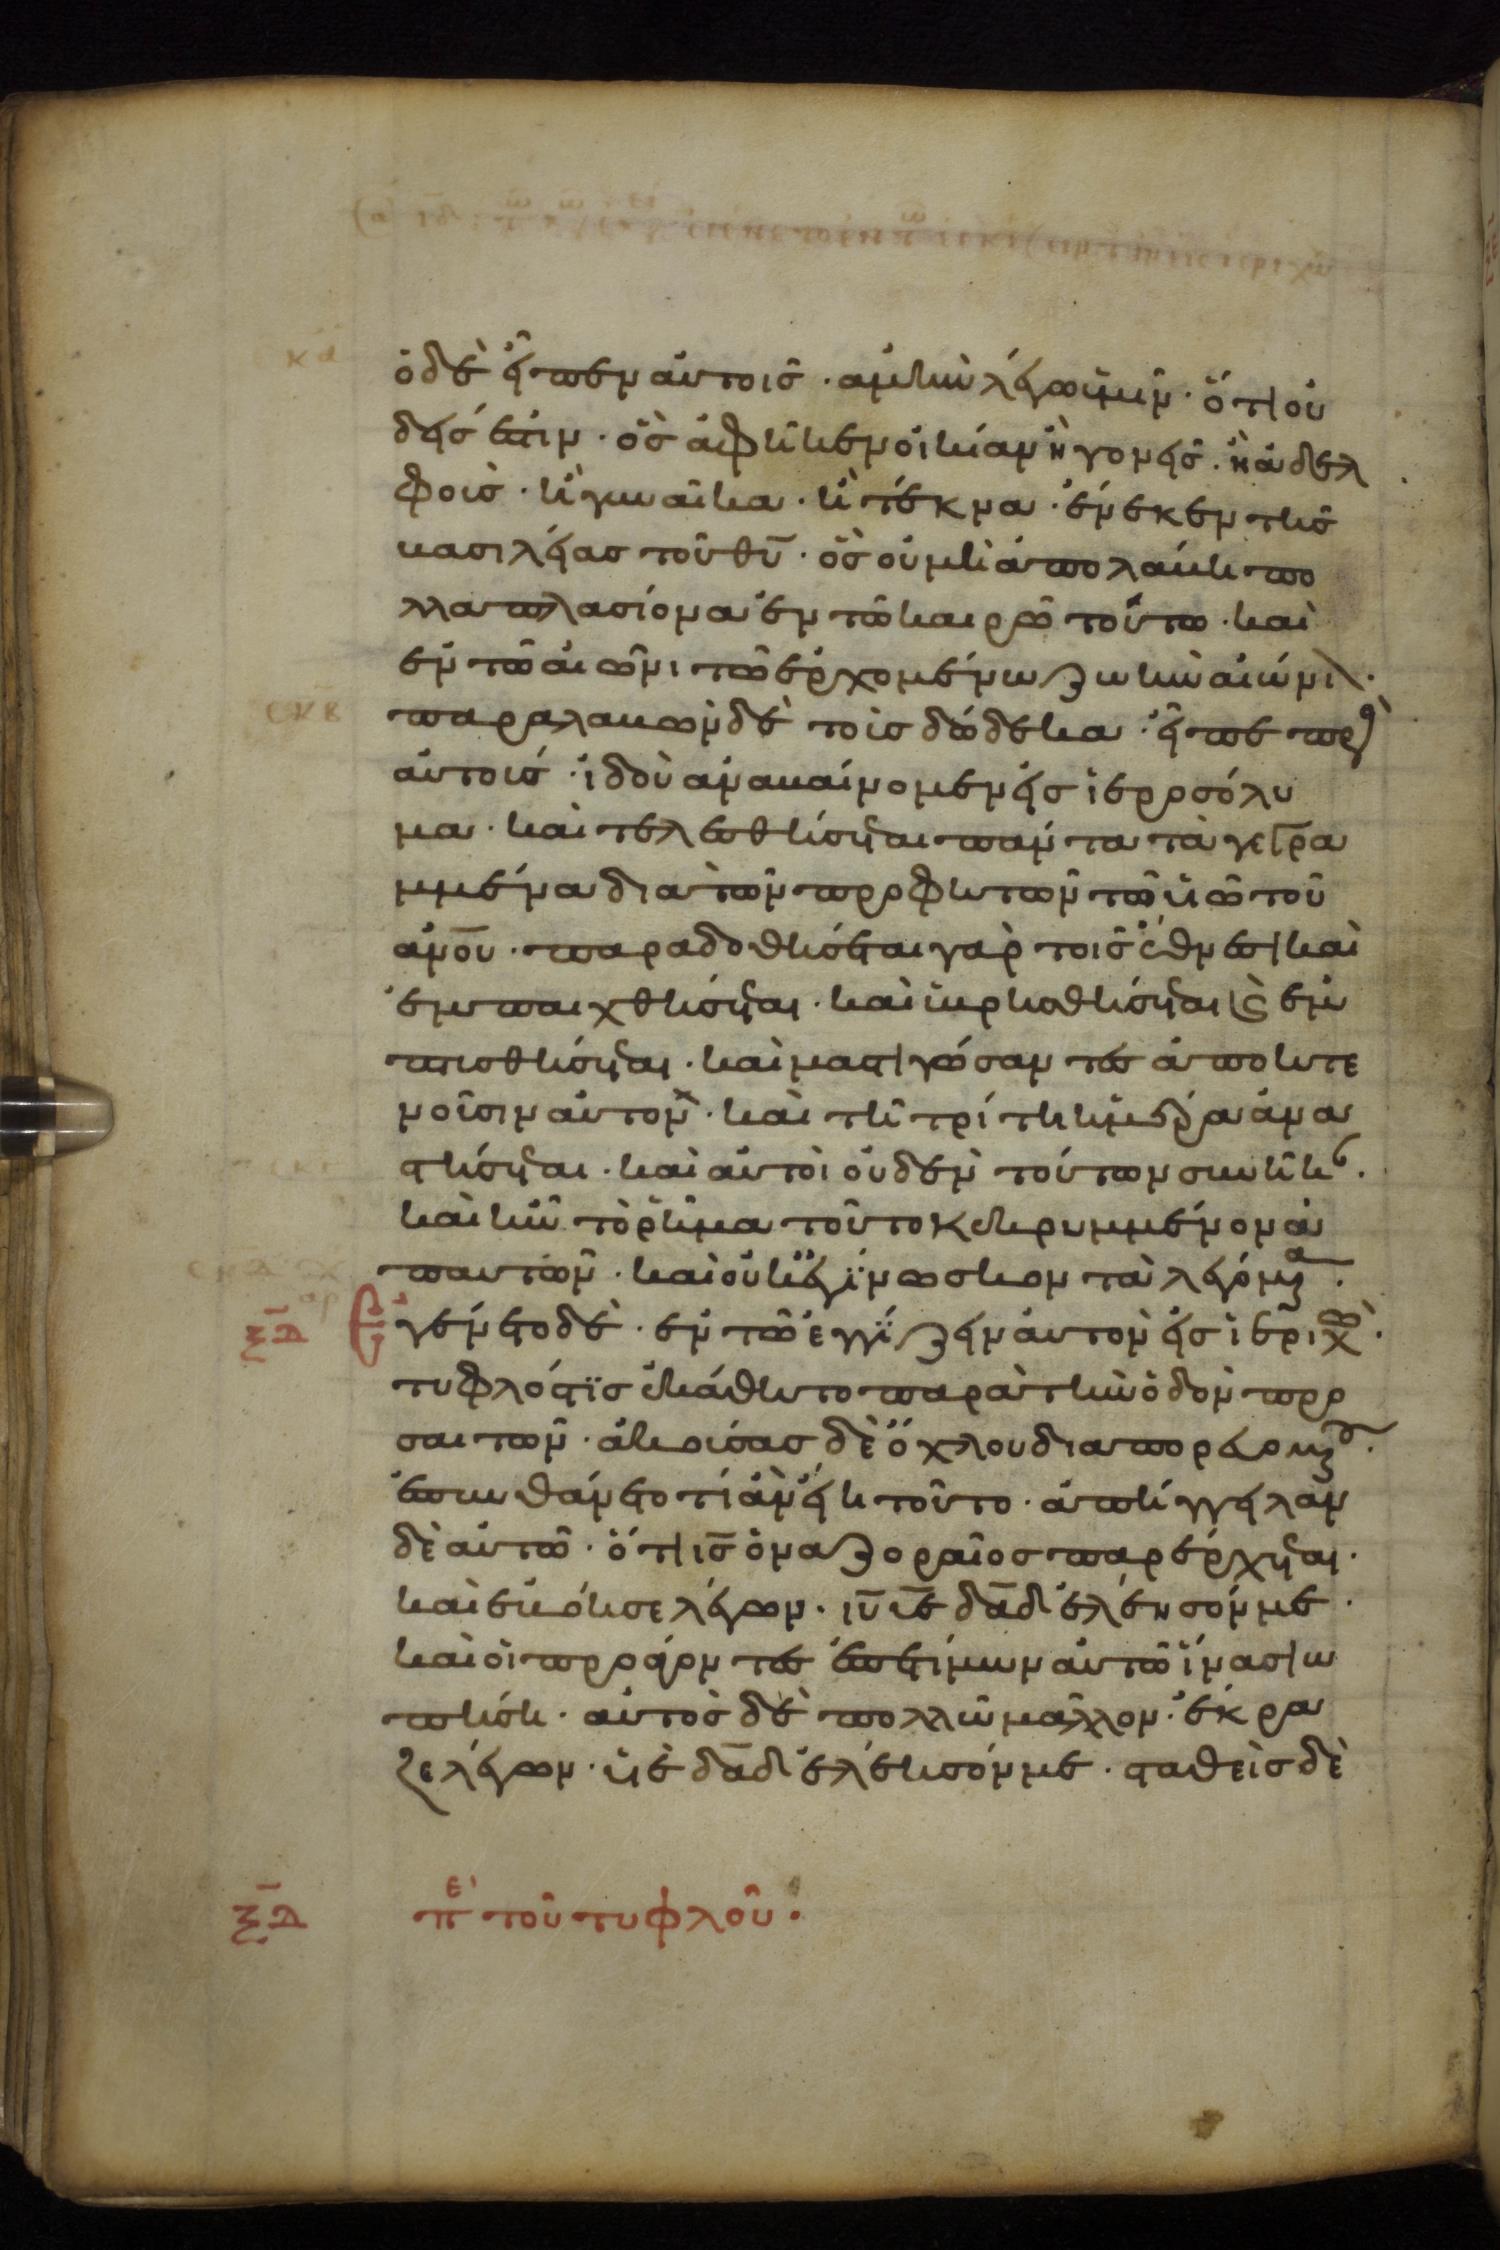 ὁ δὲ εἶπεν αὐτοῖς · ἀμὴν λέγω ὑμῖν · ὅτι οὐ
δείς ἐστιν · ὃς ἀφῆκεν οἰκίαν ἢ γονεῖς · ἢ ἀδελ
φοὺς · ἢ γυναῖκα · ἢ τέκνα · ἕνεκεν τῆς
βασιλείας τοῦ θυ · ὃς οὐ μὴ ἀπολάβη πο
λλαπλασίονα ἐν τῶ καιρῶ τούτω · καὶ
ἐν τῶ αἰῶνι τῶ ἐρχομένω ζωὴν αἰώνι
παραλαβὼν δὲ τοὺς δώδεκα · εἶπε πρ
αὐτούς · ἰδοὺ ἀναβαίνομεν εἰς ἱεροσόλυ
μα · καὶ τελεσθήσεται πάντα τὰ γεγρα
μμένα διὰ τῶν προφητῶν τῶ υἱῶ τοῦ
ανου · παραδοθήσεται γὰρ τοῖς ἔθνεσι καὶ
ἐμπαιχθήσεται · καὶ ὑβρισθήσεται καὶ ἐμ
πτυσθήσεται · καὶ μαστιγώσαντες ἀποκτε
νοῦσιν αὐτον · καὶ τῆ τρίτη ἡμέρα ἀνα
στήσεται · καὶ αὐτοὶ οὐδὲν τούτων συνῆκ ·
καὶ ἦν τὸ ῥῆμα τοῦτο κεκρυμμένον ἀ
π αὐτῶν · καὶ οὐκ ἐγίνωσκον τὰ λεγόμ ·
ἐγένετο δὲ · ἐν τῶ ἐγγίζειν αὐτὸν εἰς ἱεριχὼ ·
τυφλός τις ἐκάθητο παρὰ τὴν ὁδὸν προ
σαιτῶν · ἀκούσας δὲ ὄχλου διαπορευομ ·
ἐπυνθάνετο τί ἂν εἴη τοῦτο · ἀπήγγειλαν
δὲ αὐτῶ · ὅτι ις ὁ ναζοραῖος παρέρχεται ·
καὶ ἐβόησε λέγων · ιυ υἱὲ δαδ ἐλέησόν με ·
καὶ οἱ προάγοντες ἐπετίμων αὐτῶ ἵνα σιω
πήση · αὐτὸς δὲ πολλῶ μᾶλλον · ἔκρα
ζε λέγων · υἱὲ δαδ ἐλέησόν με · σταθεὶς δὲ
π τοῦ τυφλοῦ ·